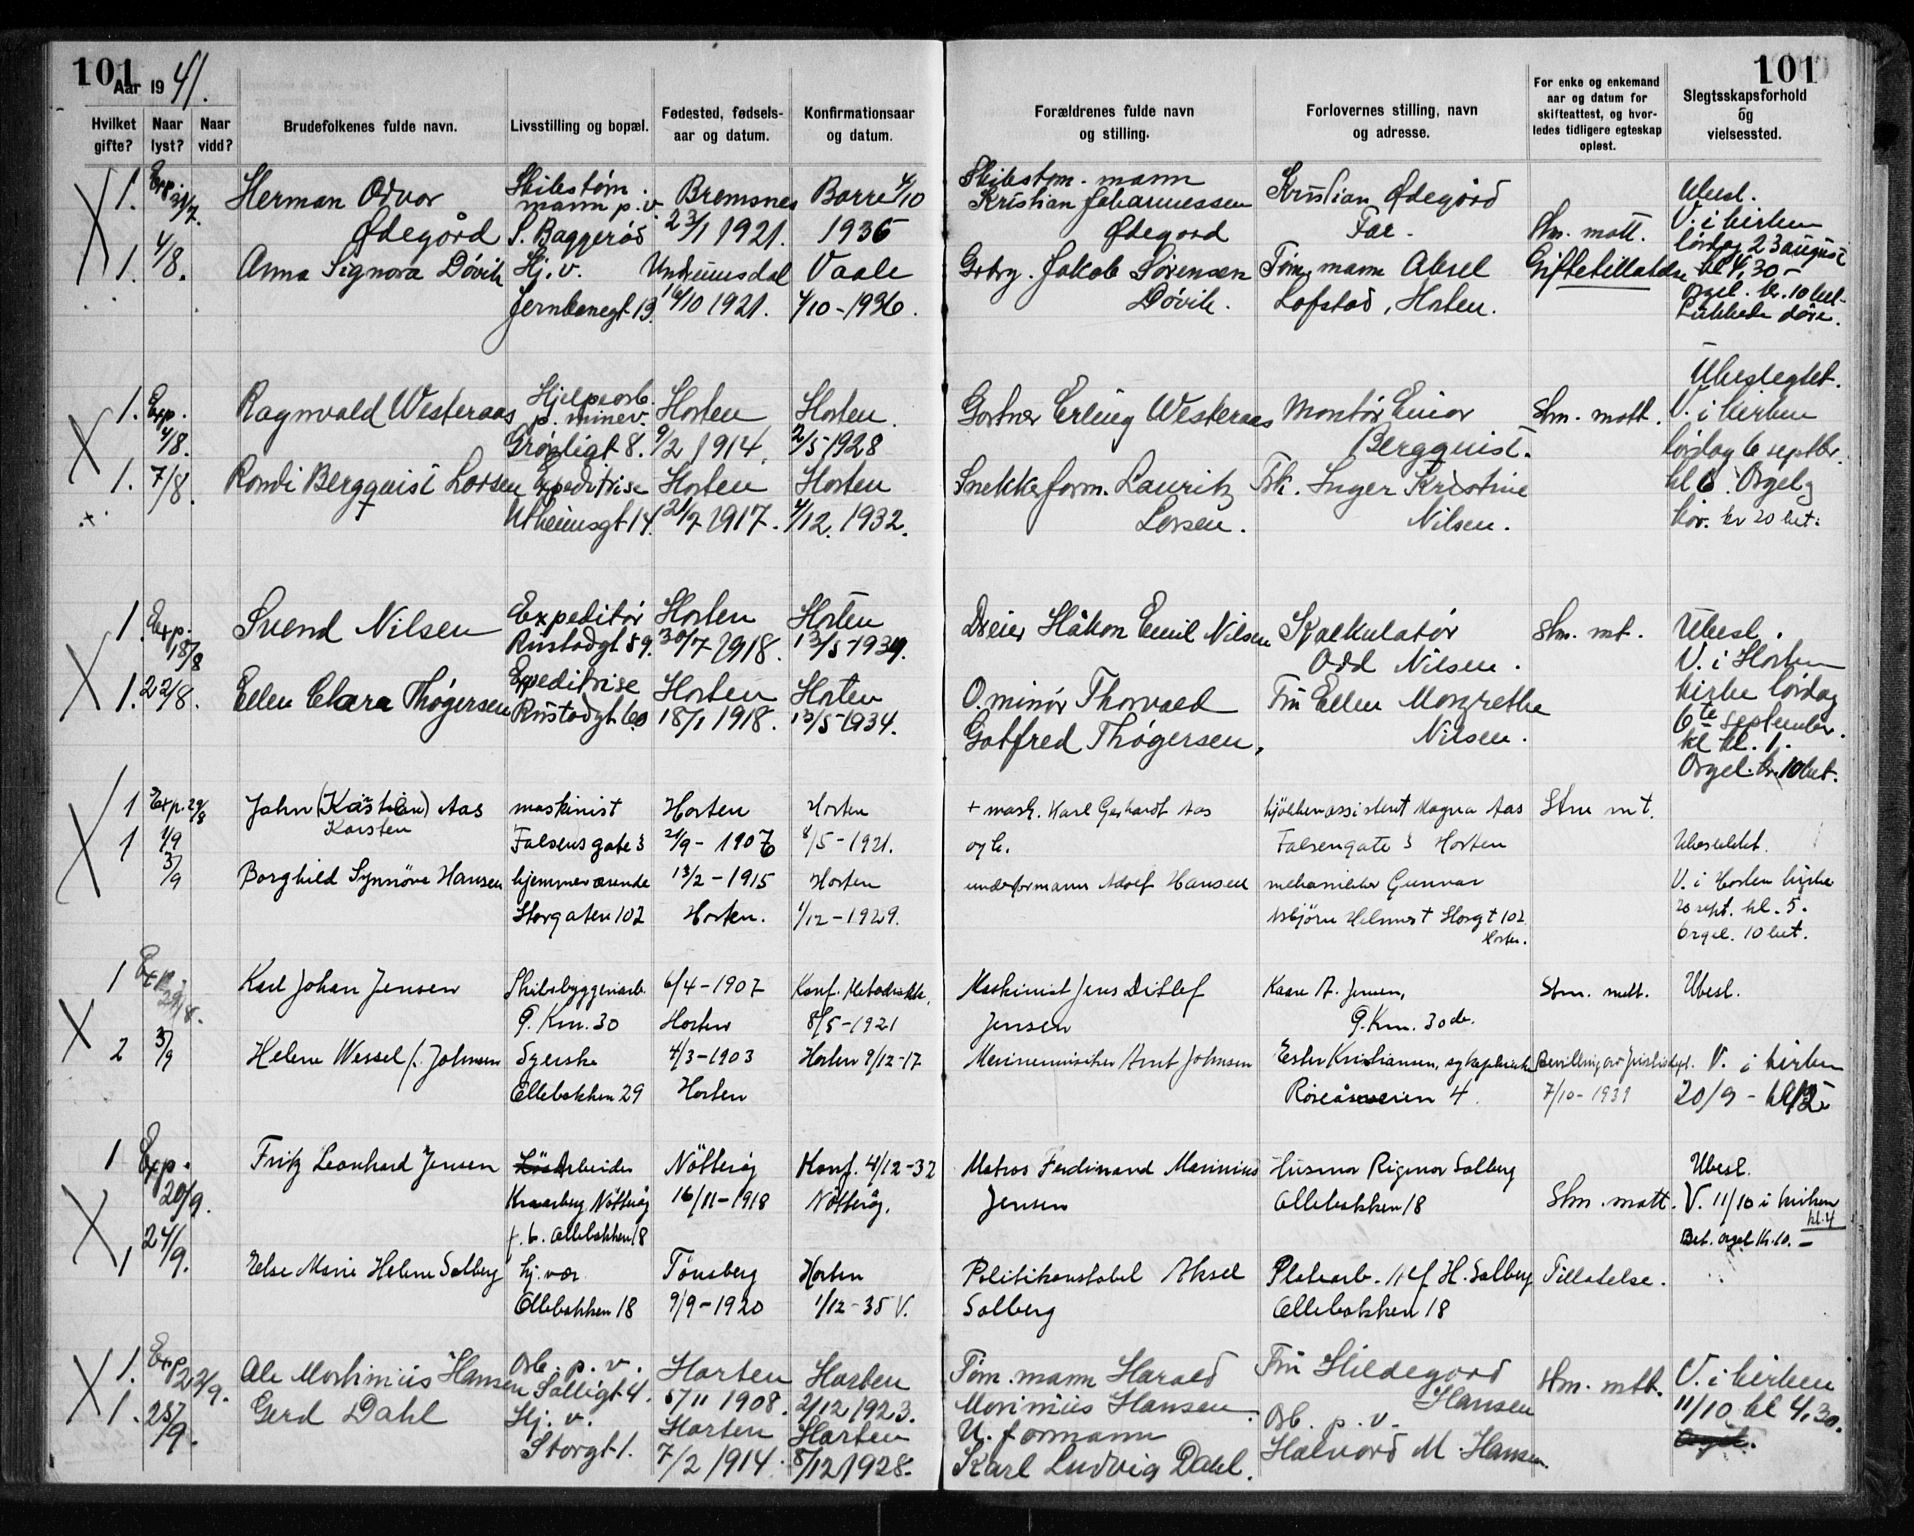 101
Aar 1941.
101
Hvilket gifte?
Naar lyst?
Naar vidd?
Brudefolkenes fulde navn.
Livsstilling og bopæl.
Fødested, fødsels-
aar og datum.
Konfirmationsaar
og datum.
Forældrenes fulde navn
og stilling.
Forlovernes stilling, navn
og adresse.
For enke og enkemand
aar og datum for
skifteattest, og hvor-
ledes tidligere egteskap
opløst.
Slegtsskapsforhold
og
vielsessted.
1. Exp. 31/7. Herman Odvar Skibstøm. Bremsnes Borre 4/10 Skibstøm. mann Kristian Ødegård Ubesl.
mann p. v. Kristian Johannessen V. i kirken
Ødegård S. Baggerød 23/1 1921. 1936 Ødegord Far. Stm. matt. lørdag 23 august
1. 4/8. Anna Signora Døvik Hj. v. Undrumsdal Vaale Grbr. Jakob Sørensen Tøm. mann Aksel Giftetillatelse kl 4,30 –
Jernbanegt. 13. 16/10 1921. 4/10 - 1936. Døvik. Lofstad, Horten. Orgel. kr. 10 bet.
Lukkede døre.
1. Exp. Ragnvald Westeraas Hjelpearb. Horten Horten. Gartner Erling Westeraas Montør Einar Stm. matt. Ubeslegtet.
4/8. p. minev. V. i kirken
Grønligt 8. 9/2 1914. 2/5-1928 Bergquist. lørdag 6 septbr.
1. 7/8. Randi Bergquist Larsen Expeditrise Horten Horten Snekkerform. Lauritz Frk. Inger Kristine kl 6. Orgel
Utheimsgt 14. 21/7 1917. 4/12. 1932. Larsen. Nilsen. kr 20 bet.
1. Exp. Svend Nilsen Expeditør Horten Horten Dreier Håkon Emil Nilsen Kalkulatør Stm. mt. Ubesl.
18/8 Rustadgt 59. 30/7 1918. 13/5-1934. Odd Nilsen. V. i Horten
1. 22/8. Ellen Clara Thøgersen Expeditrise Horten Horten O. minør Thorvald Fru Ellen Margrethe kirke lørdag
Rustadgt 60 18/1 1918. 13/5-1934. Gotfred Thøgersen, Nilsen. 6te september.
kl. 1.
Orgel. kr 10 bet.
1 Exp. 29/8 John (Kristian) Aas maskinist Horten Horten + mask. Karl Gerhardt Aas kjøkkenassistent Magna Aas Stm mt.
Karsten
1 1/9 Falsensgate 3 21/9 - 1906 8/5-1921. og h. Falsengate 3 Horten Ubeslektet.
3/9 Borghild Synnöve Hansen hjemmeværende 13/2 - 1915 Horten underformann Adolf Hansen mekaniker Gunnar V. i Horten kirke
Storgaten 102 Horten. 1/12 - 1929. Asbjörn Helmer Storgt 102 20 sept. kl. 5.
Horten. Orgel. 10 bet.
1 Exp. Karl Johan Jensen Skibsbyggeriarb. 6/4-1907 Konf. Metodistk. Maskinist Jens Ditlef Kaare A. Jensen, Stm. matt. Ubesl.
29/8. G. Km. 30 Horten 8/5-1921 Jensen G. Km. 30 do.
2 3/9 Helene Wessel f. Johnsen Syerske 4/3-1903 Horten 9/12-17 Marineminister Arnt Johnsen Ester Kristiansen, sykepleierske Bevilling av Justisdept. V. i kirken
Ollebakken 29 Horten Roseåsveien 4. 7/10-1939 20/9 -
1 Exp. Fritz Leonhard Jensen Arbeider Nötteröy Konf. 4/12-32 Matros Ferdinand Marinius Husmor Rigmor Solberg Ubesl.
20/9. Nötteröy 16/11-1918 Nötteröy. Jensen Ollebakken 18 Stm. matt. V. 11/10 i kirken
f. b. Ollebakken 18 kl. 4
1 24/9. Else Marie Helene Solberg hj. vær. Tönsberg Horten Politikonstabel Aksel Platearb. Alf H. Solberg Tillatelse. Bet. orgel kr. 10. –
Ollebakken 18 9/9-1920 1/12-35 V. Solberg Ollebakken 18
1. Exp. 22/9. Ole Martinius Hansen Arb. p. v. Horten Horten Tøm. mann Harald Fru Hildegard Stm. mtt. V. i kirken
Solligt 4. 5/11 1908. 2/12 1923. Marinius Hansen. Hansen 11/10 kl 4.30.
1. 25/9. Gerd Dahl Hj. v. Horten Horten U. formann Arb. p. v.
Storgt 1. 7/2 1914. 8/12 1928. Karl Ludvig Dahl. Halvard M. Hansen.